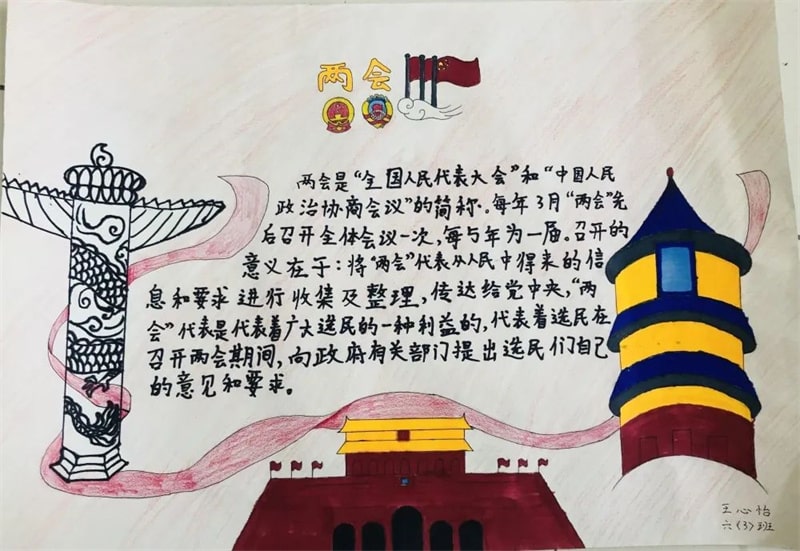 两会
两会是“全国人民代表大会”和“中国人民
政治协商会议”的简称。每年3月“两会”先
后召开全体会议一次，每与年为一届。召开的
意义在于：将“两会”代表从人民中得来的信
息和要求进行收集及整理，传达给党中央，“两
会”代表是代表着广大选民的一种利益的，代表着选民在
召开两会期间，向政府有关部门提出选民们自己
的意见和要求。
王心怡
六（3）班